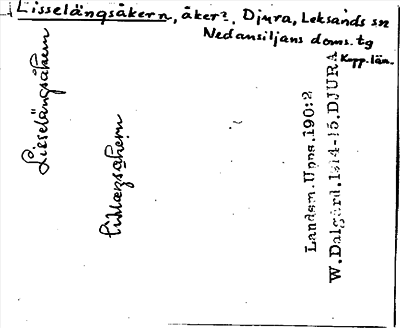 Lisselängsåkern, åker?, Djura, Leksands sn
Nedansiljans doms. tg
Kopp. län.
Lisselängsåkern
Landsm. Upps. 190:2
W. Dalgård. 1914-15. DJURA